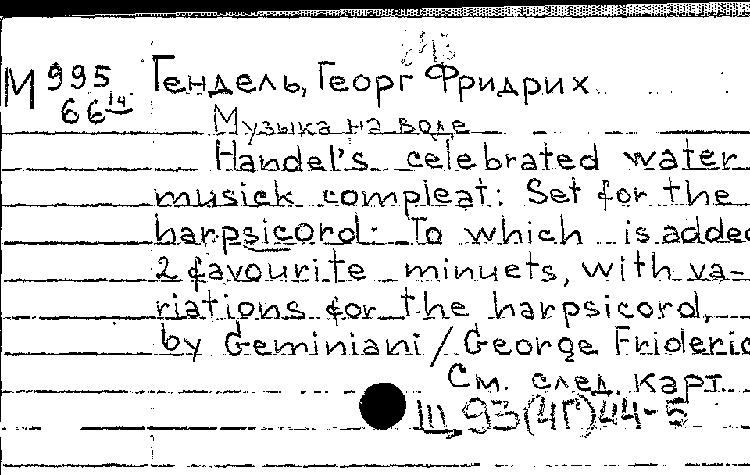 М 995 Гендель, Георг Фридрих
66 14
Музыка на воде
Handel's celebrated water
musick compleat: Set for the
harpsicord: To which is added
2 favourite minuets, with va-
riations for the harpsicord,
by Geminiani / George Frideric
См. след. карт.
Ш 93(4Г)44-5